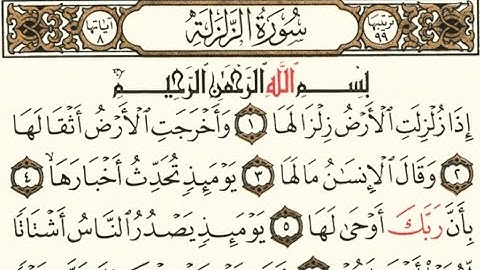 ترتيبها ٩٩ سُورَةُ الزَّلْزَلَةِ آياتها ٨
بِسْمِ اللَّهِ الرَّحْمَٰنِ الرَّحِيمِ
إِذَا زُلْزِلَتِ الْأَرْضُ زِلْزَالَهَا ١ وَأَخْرَجَتِ الْأَرْضُ أَثْقَالَهَا
٢ وَقَالَ الْإِنسَٰنُ مَالَهَا ٣ يَوْمَئِذٍ تُحَدِّثُ أَخْبَارَهَا ٤
بِأَنَّ رَبَّكَ أَوْحَىٰ لَهَا ٥ يَوْمَئِذٍ يَصْدُرُ النَّاسُ أَشْتَاتًا